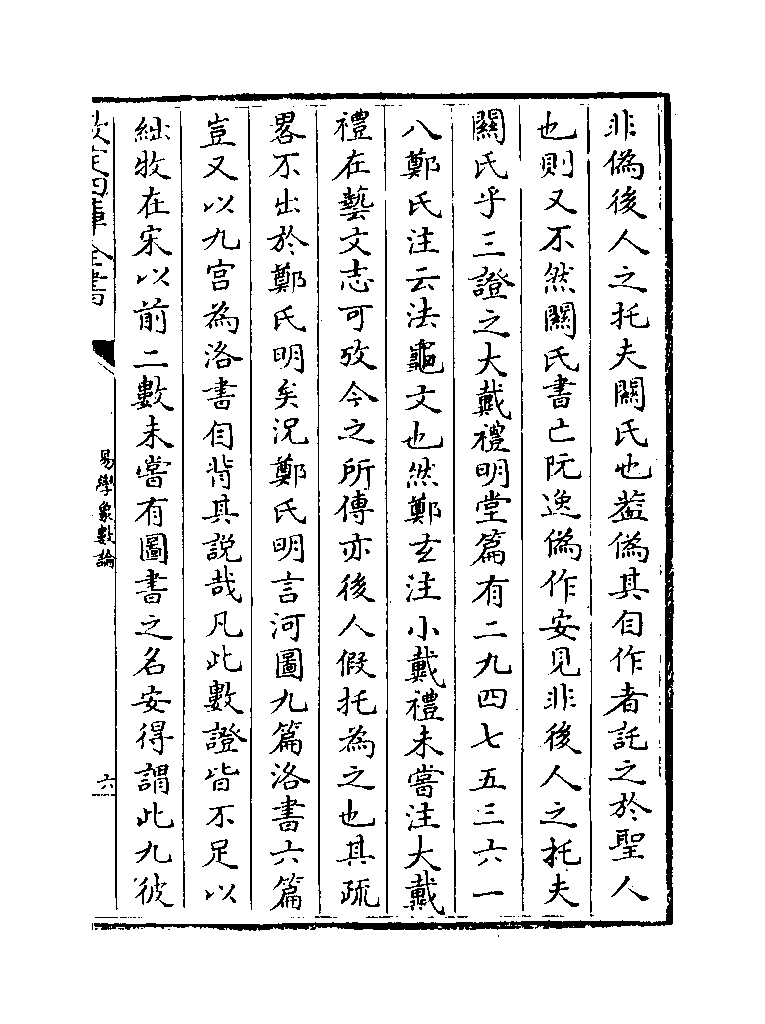 非偽後人之托夫關氏也葢偽其自作者託之於聖人
也則又不然關氏書亡阮逸偽作安見非後人之托夫
關氏乎三證之大戴禮明堂篇有二九四七五三六一
八鄭氏注云法龜文也然鄭玄注小戴禮未嘗注大戴
禮在藝文志可攷今之所傳亦後人假托為之也其疏
畧不出於鄭氏明矣況鄭氏明言河圖九篇洛書六篇
豈又以九宫為洛書自背其説哉凡此數證皆不足以
絀牧在宋以前二數未嘗有圖書之名安得謂此九彼
欽定四庫全書
易學象數論
六